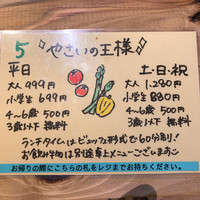 5 やさいの王様
平日
大人 999円
小学生 699円
4〜6歳 500円
3歳以下 無料
土・日・祝
大人 1,280円
小学生 880円
4〜6歳 500円
3歳以下 無料
ランチタイムはビュッフェ形式で60分制!
お飲み物は別途卓上メニューございます
お帰りの際にこちらの札をレジまでお持ちください。